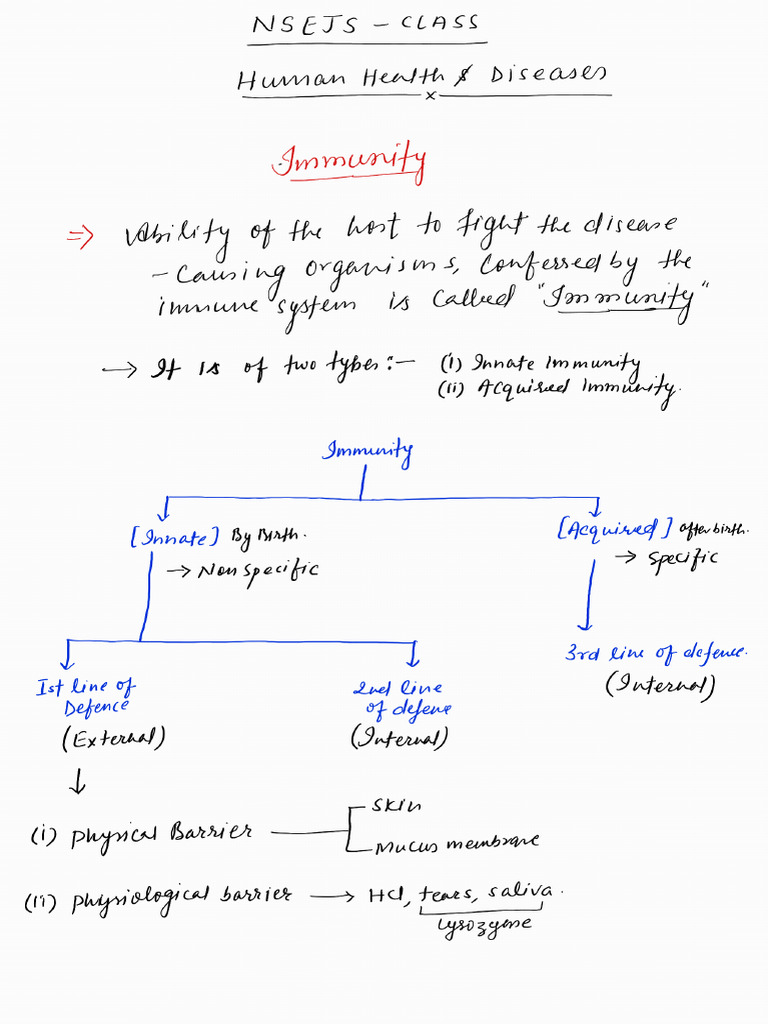 NSEJS - CLASS
Human Health & Diseases
x
Immunity
⇒ Ability of the host to fight the disease
- causing organisms, conferred by the
immune system is called "Immunity"
→ It is of two types :- (i) Innate Immunity
(ii) Acquired Immunity.
Immunity
[Innate] By Birth.
→ Non specific
[Acquired] after birth.
→ specific
3rd line of defence.
(Internal)
Ist line of
Defence
(External)
2nd line
of defene
(Internal)
(i) Physical Barrier
skin
Mucus membrane
(ii) Physiological barrier → HCl, tears, saliva.
Lysozyene